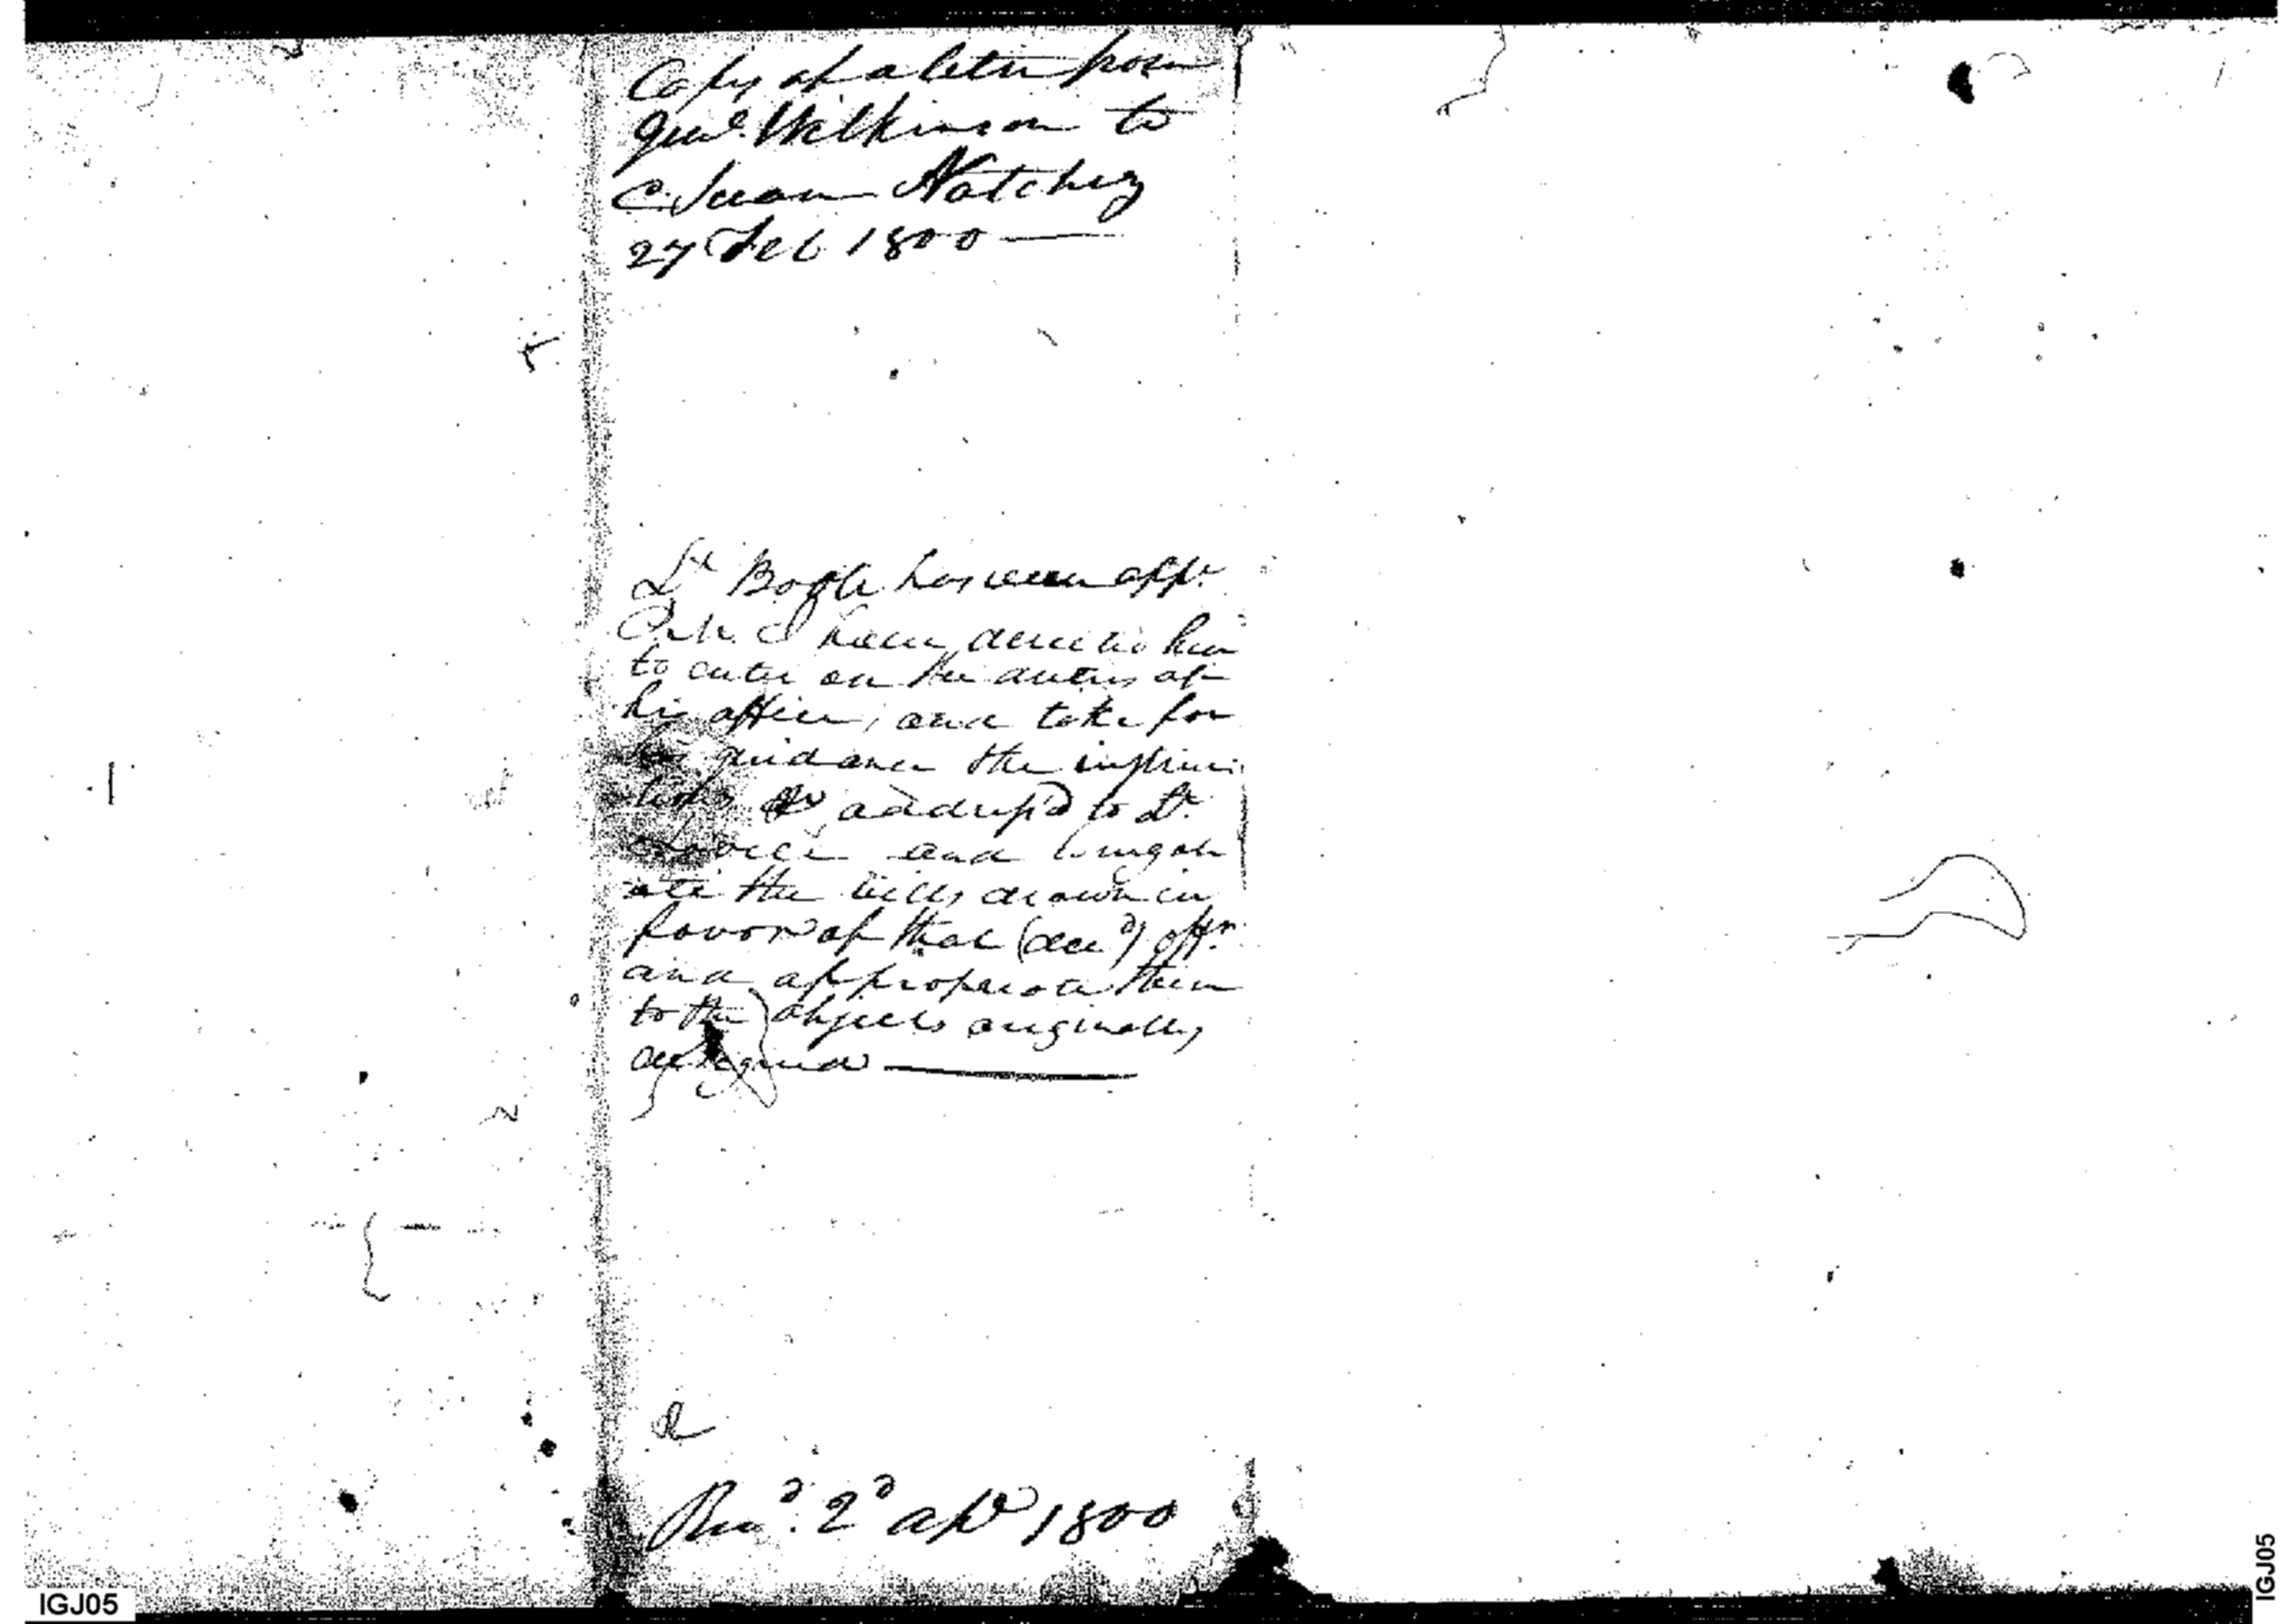 Copy of a letter from
Genl. Wilkinson to
C. Swan Natchez
27 Feb 1800
Lt Bogle has been appd.
P. M. I have directed him
to enter on the duties of
his office, and take for
his guidance the instruc
tions addressd to Lt.
and
ate the bills drawn in
favor of that (decd) offr.
and appropriate them
to the objects originally
designed
Recd. 2d apl 1800
IGJ05
IGJ05